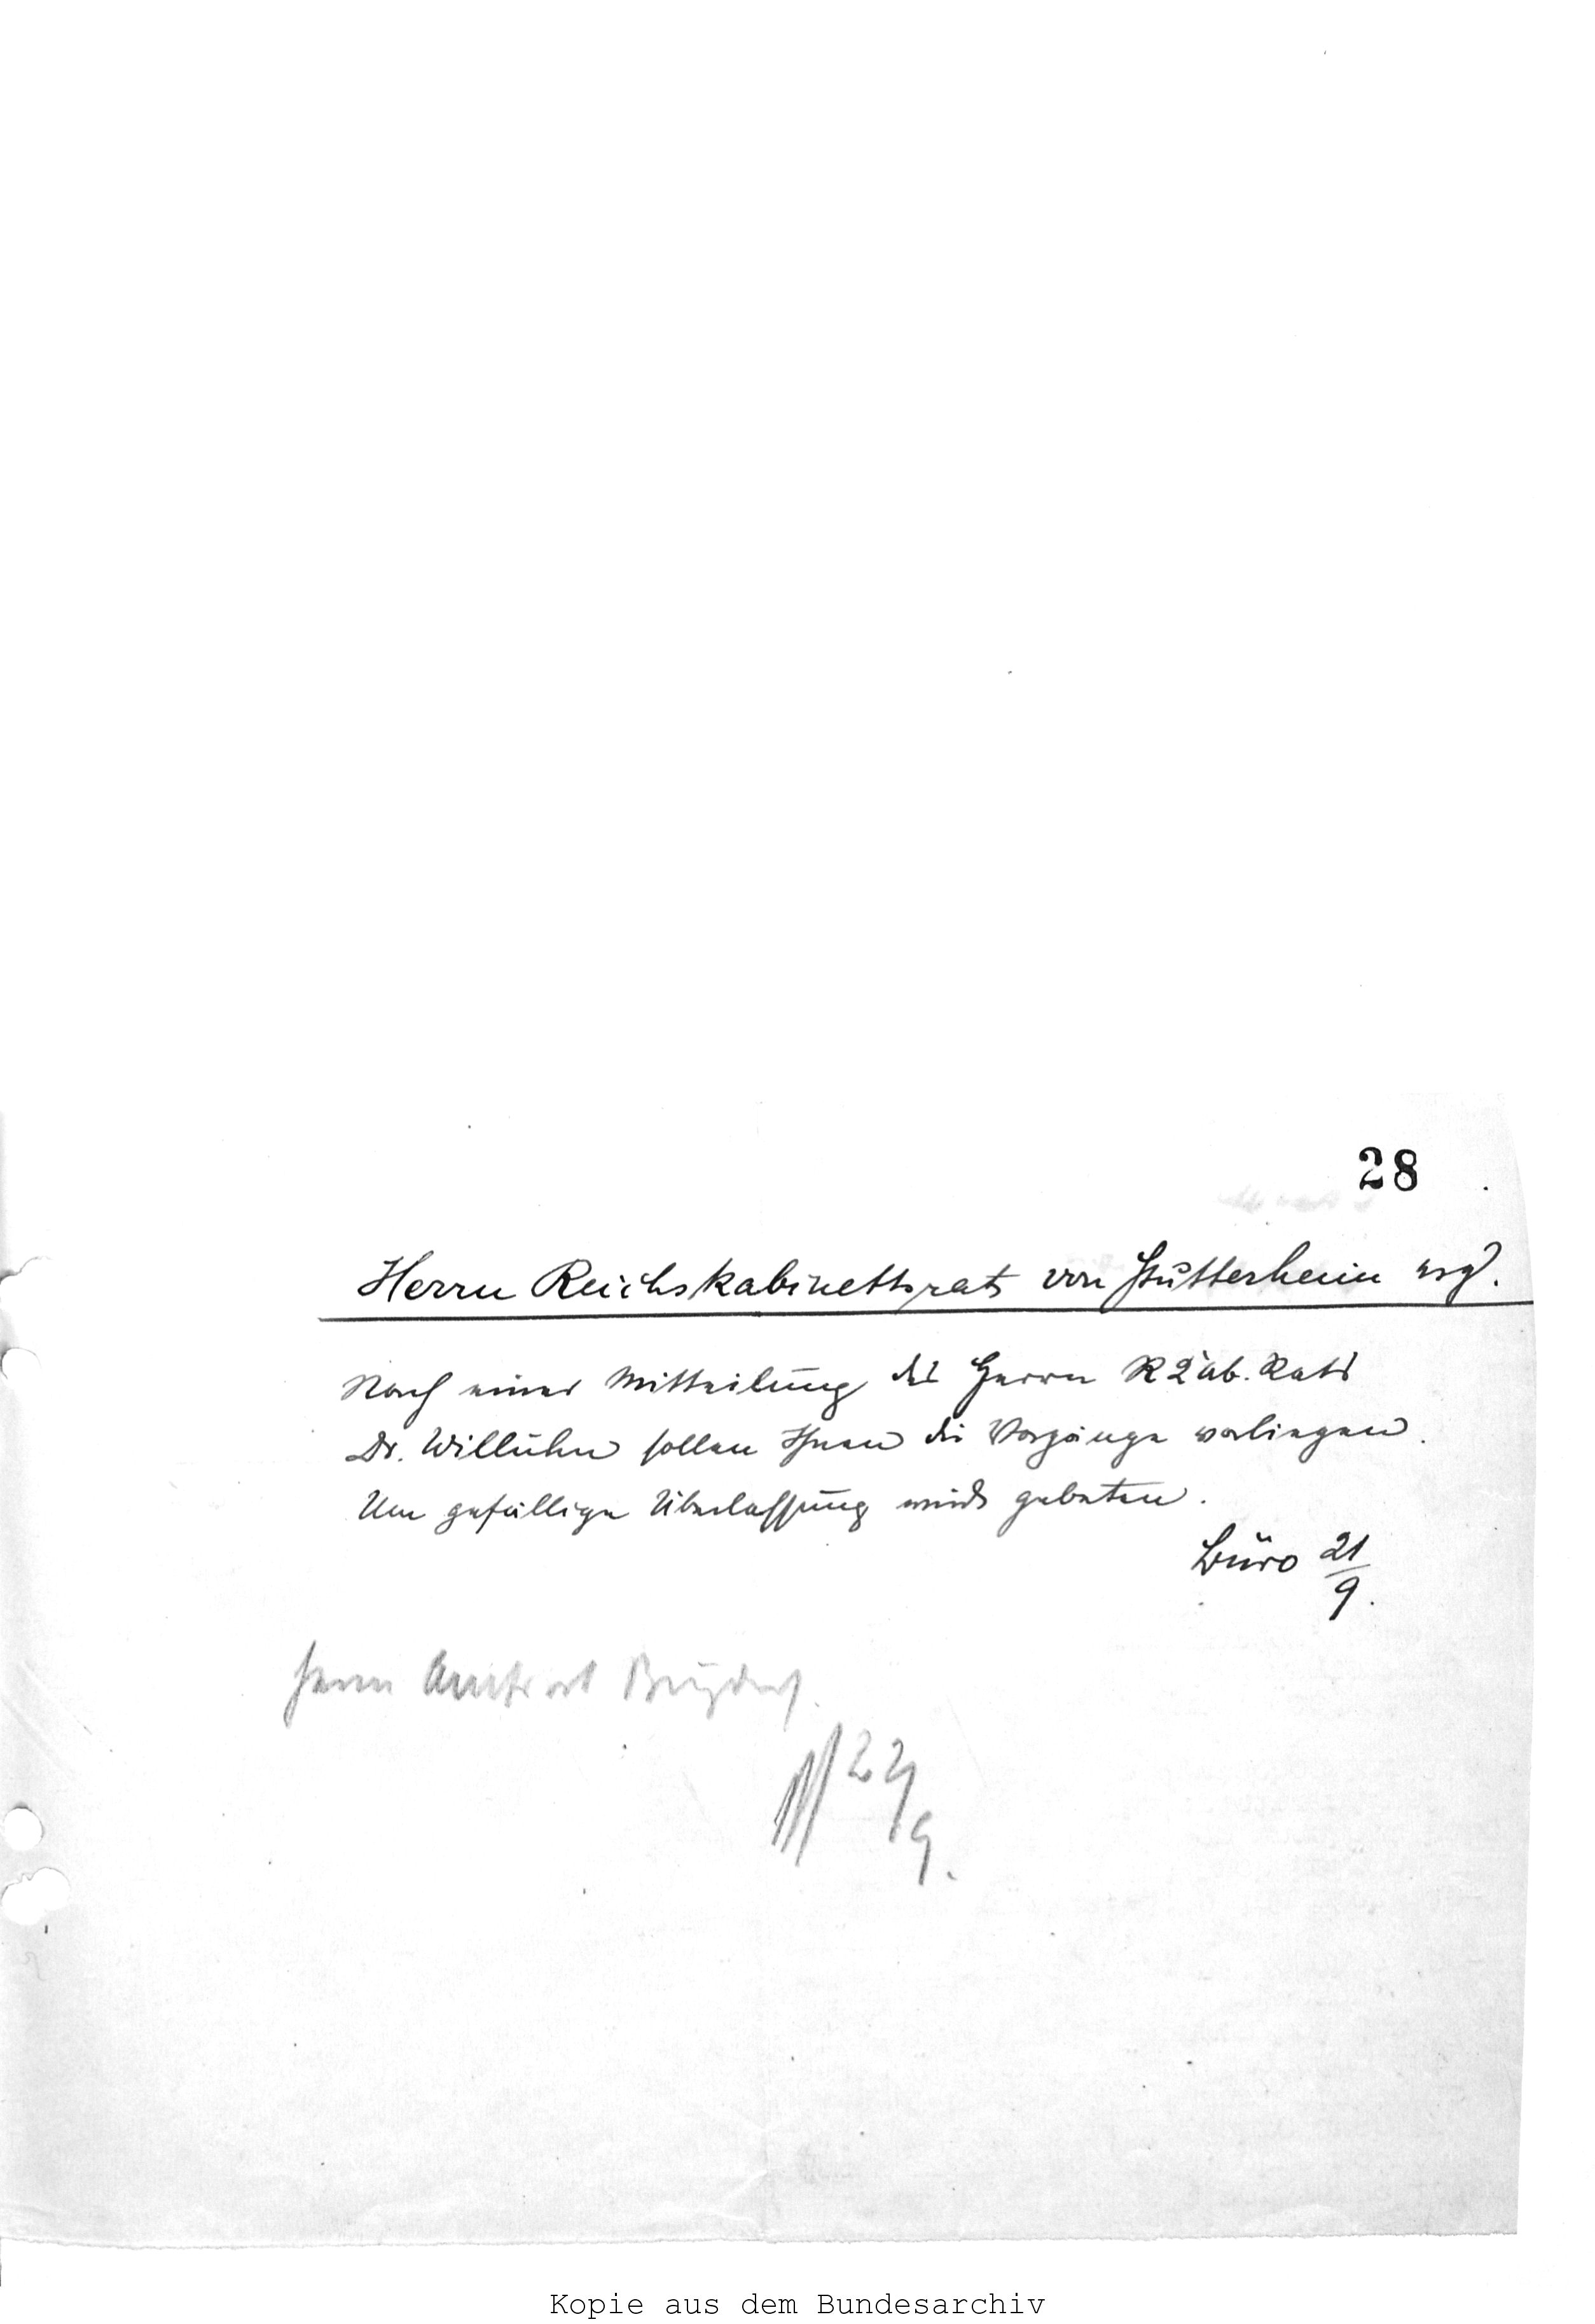 28
Herrn Reichskabinettsrat von Stutterheim erg.
Nach einer Mitteilung des Herrn R Kab. Rats
Dr. Willuhn sollen Ihnen die Vorgänge vorliegen.
Um gefällige Überlassung wird gebeten.
Büro 21/9.
Herrn Amtsrat
22/9.
Kopie aus dem Bundesarchiv